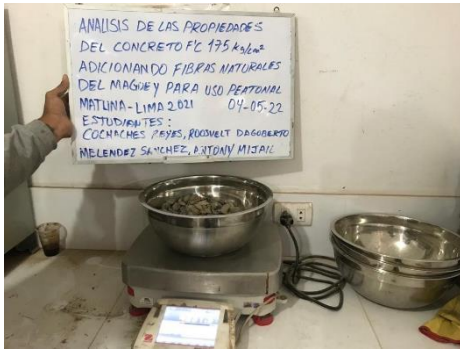 ANALISIS DE LAS PROPIEDADES
DEL CONCRETO F'C 175 Kg/cm²
ADICIONANDO FIBRAS NATURALES
DEL MAGUEY PARA USO PEATONAL
MATUNA-LIMA 2021 04-05-22
ESTUDIANTES:
COCHACHES REYES, ROOSVELT DAGOBERTO
MELENDEZ SANCHEZ, ANTONY MIJAIL